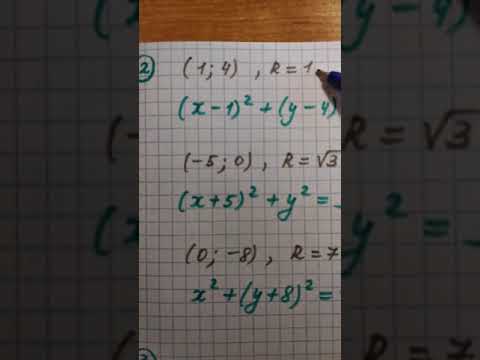 2) (1; 4) , R = 1
(x - 1)² + (y - 4)
(-5; 0) , R = √3
(x + 5)² + y² =
(0; -8) , R = 7
x² + (y + 8)² =